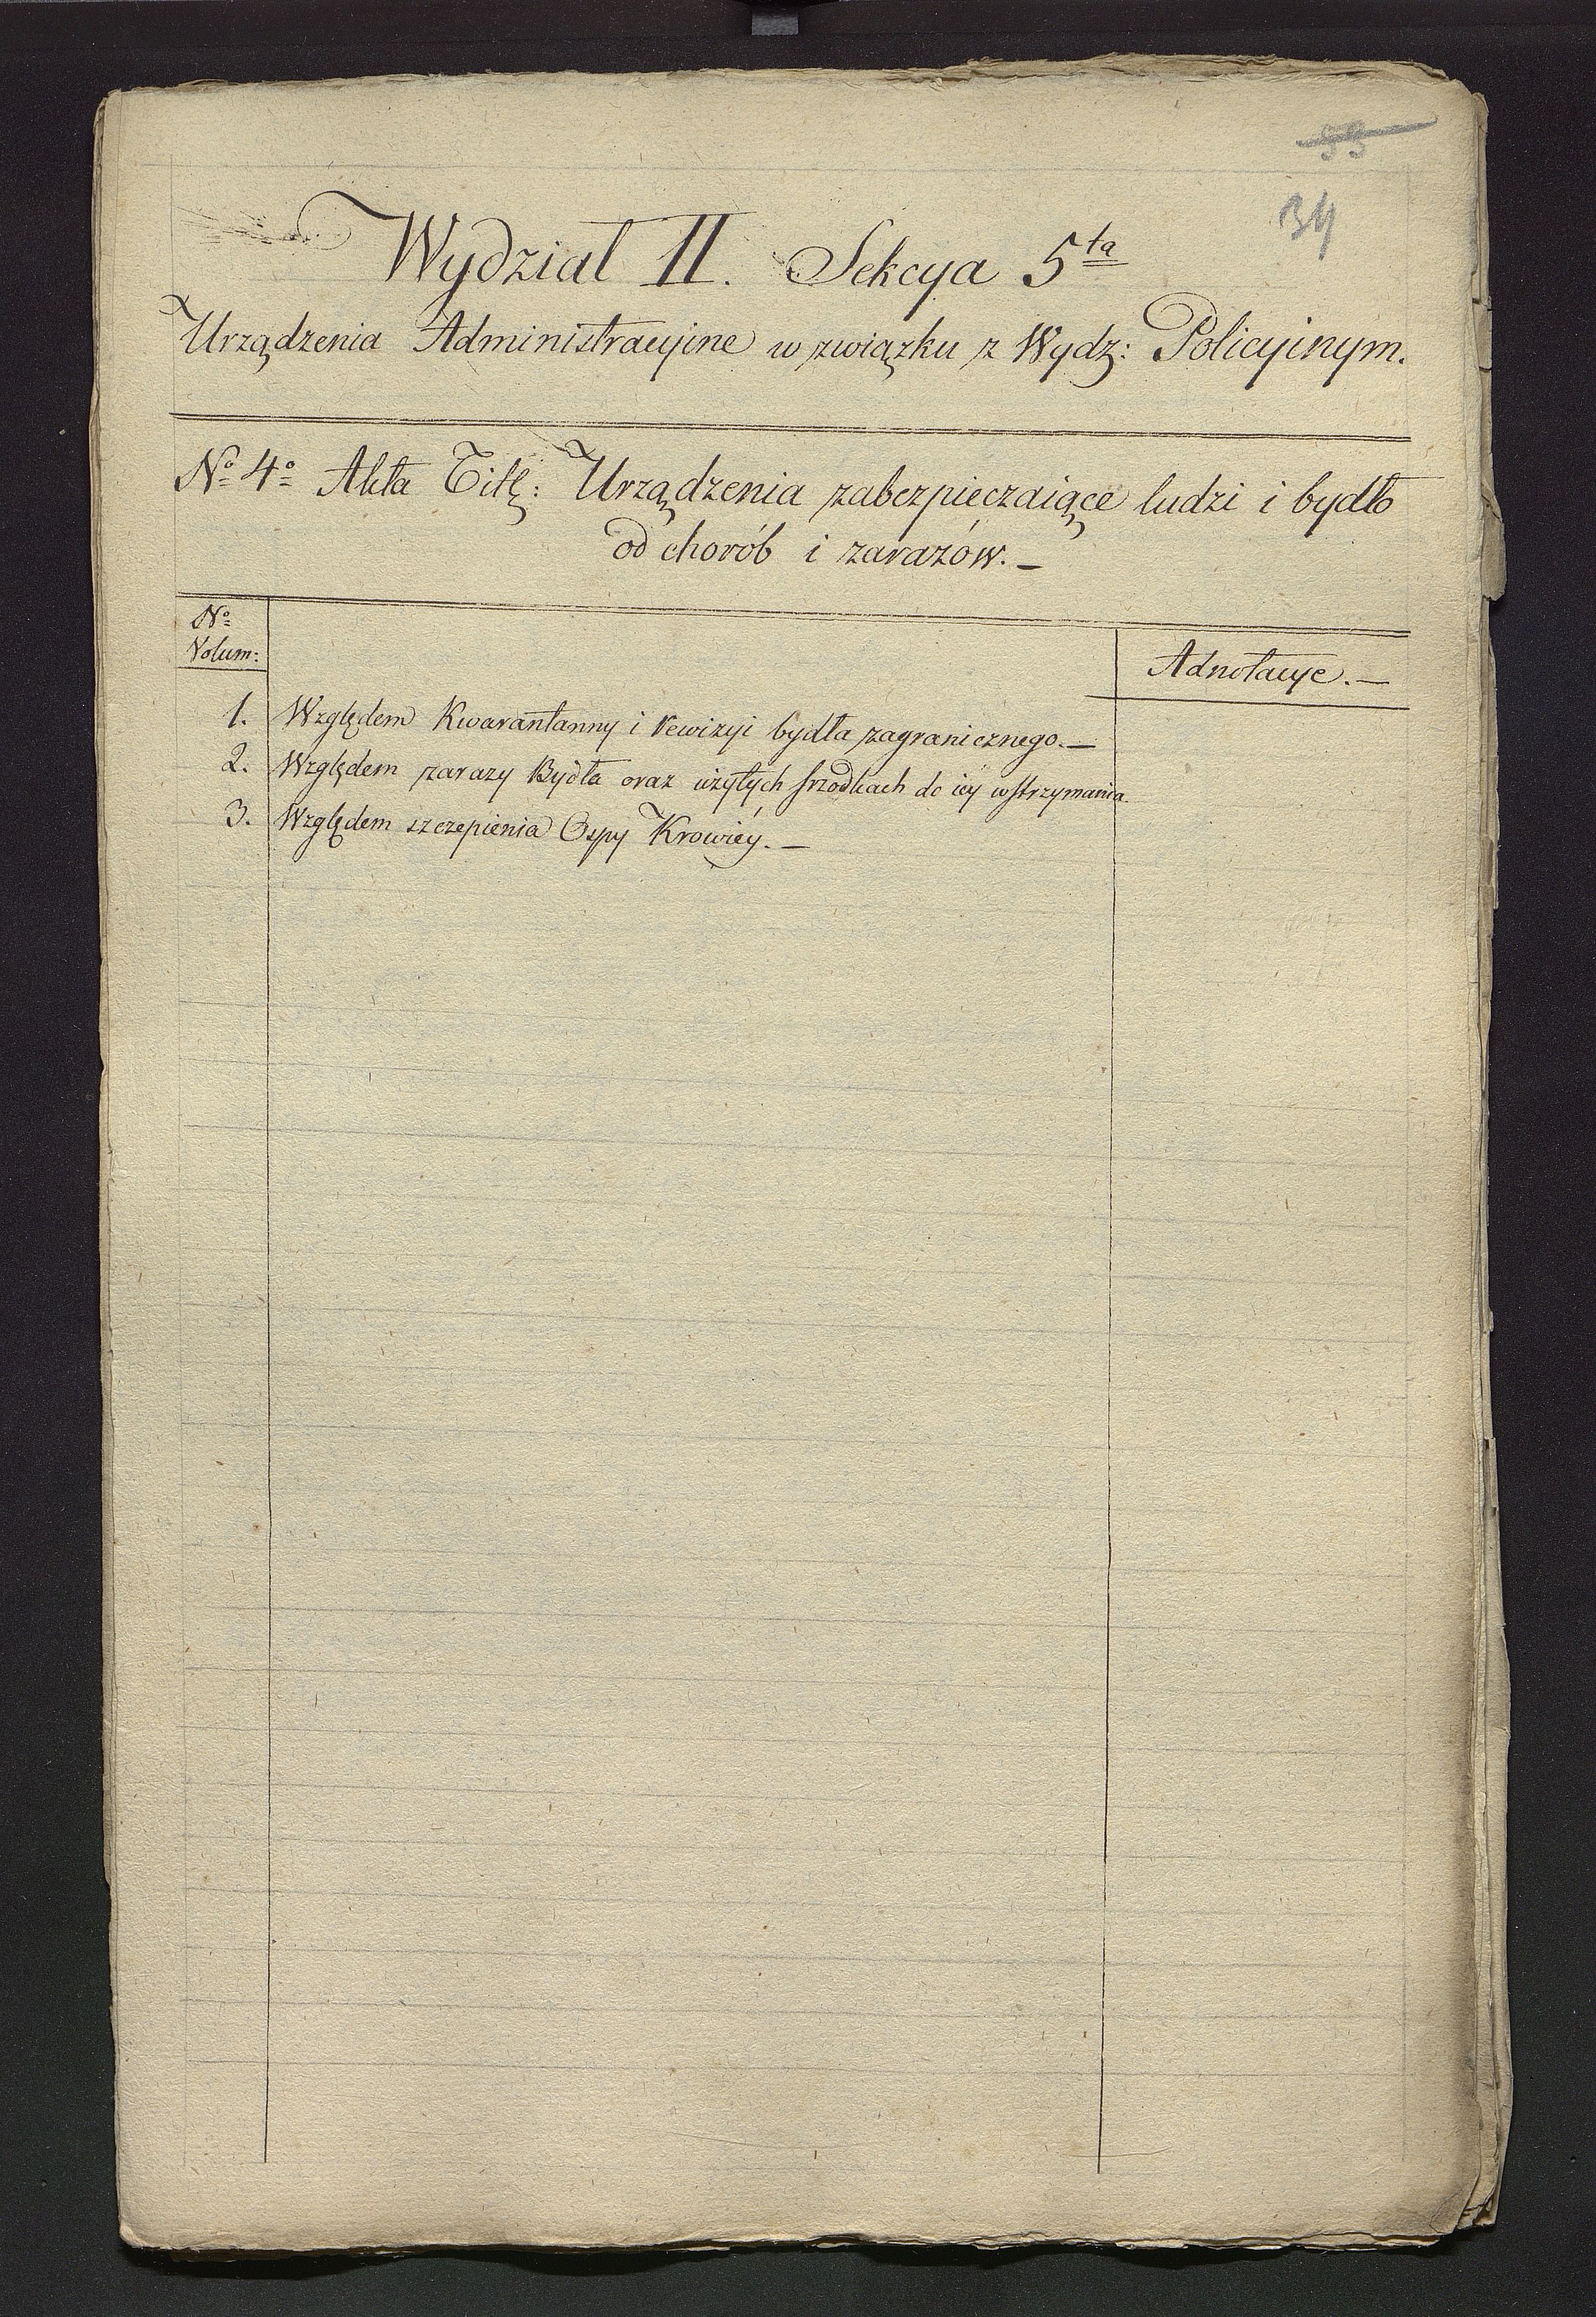 33
34
Wydział II. Sekcya 5ta
Urządzenia Administracyine w związku z Wydz: Policyinym.
No 4o Akta Titł: Urządzenia zabezpieczaiące ludzi i bydło
od chorób i zarazów. –
No
Volum:
Adnotacye. –
1. Względem Kwarantanny i rewizyi bydła zagranicznego. –
2. Względem zarazy Bydła oraz użytych srzodkach do iéy wstrzymania.
3. Względem szczepienia Ospy Krowiéy. –